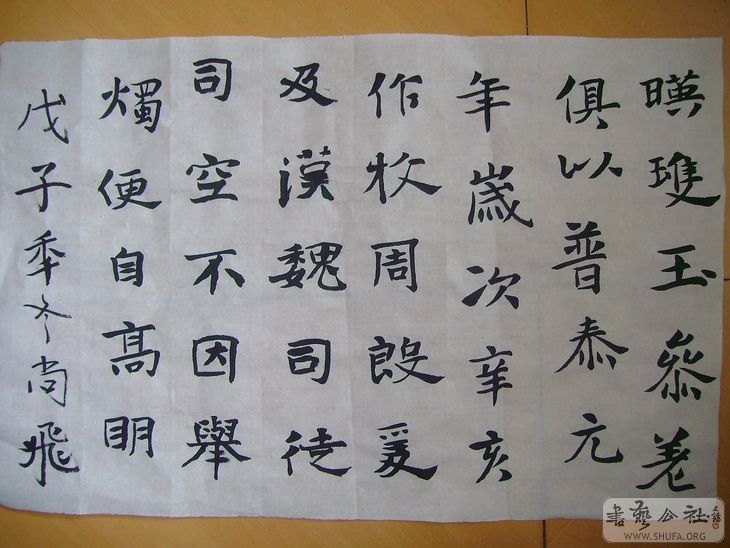 暎瓊玉叅差
俱以普泰元
年歲次辛亥
作牧周殷爰
及漢魏司徒
司空不因舉
燭便自高明
戊子年冬尚飛
書藝公社
WWW.SHUFA.ORG